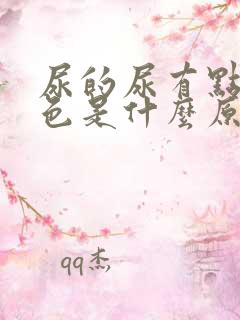 尿的尿有點
色是什麼原
qq杰